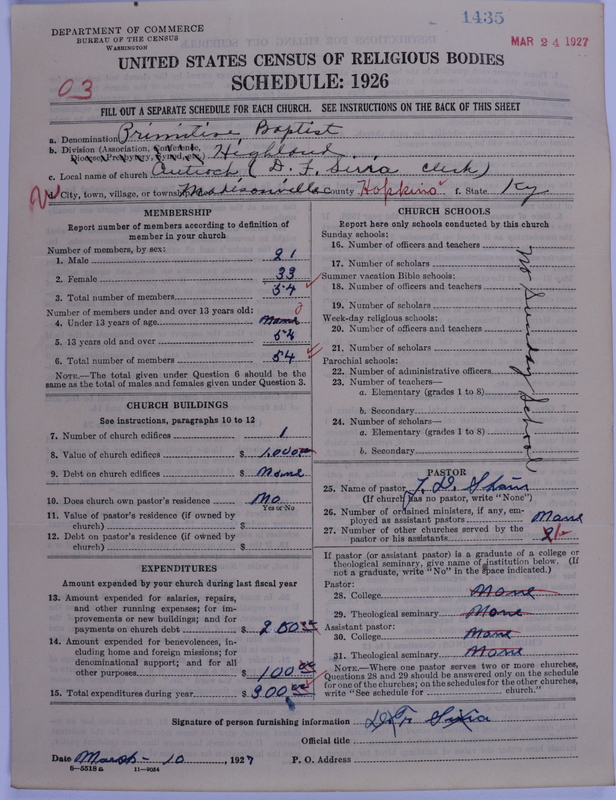 1435
MAR 24 1927
DEPARTMENT OF COMMERCE
BUREAU OF THE CENSUS
WASHINGTON
UNITED STATES CENSUS OF RELIGIOUS BODIES
SCHEDULE: 1926
03
FILL OUT A SEPARATE SCHEDULE FOR EACH CHURCH. SEE INSTRUCTIONS ON THE BACK OF THIS SHEET
a. Denomination Primitive Baptist
b. Division (Association, Conference, Diocese, Presbytery, Synod, etc.) Highland
c. Local name of church Antioch (D. F. Sivia Clerk)
d. City, town, village, or township Madisonville County Hopkins f. State Ky
MEMBERSHIP
Report number of members according to definition of
member in your church
Number of members, by sex:
1. Male 21
2. Female 33
3. Total number of members 54
Number of members under and over 13 years old:
4. Under 13 years of age None 0
5. 13 years old and over 54
6. Total number of members 54
NOTE.—The total given under Question 6 should be
same as the total of males and females given under Question 3.
CHURCH BUILDINGS
See instructions, paragraphs 10 to 12
7. Number of church edifices 1
8. Value of church edifices $ 1,000.00
9. Debt on church edifices $ None
10. Does church own pastor's residence No
Yes or No
11. Value of pastor's residence (if owned by
church) $
12. Debt on pastor's residence (if owned by
church) $
EXPENDITURES
Amount expended by your church during last fiscal year
13. Amount expended for salaries, repairs,
and other running expenses; for im-
provements or new buildings; and for
payments on church debt $ 200.00
14. Amount expended for benevolences, in-
cluding home and foreign missions; for
denominational support; and for all
other purposes $ 100.00
15. Total expenditures during year $ 300.00
CHURCH SCHOOLS
Report here only schools conducted by this church
Sunday schools:
16. Number of officers and teachers
17. Number of scholars
Summer vacation Bible schools:
18. Number of officers and teachers
19. Number of scholars
Week-day religious schools:
20. Number of officers and teachers
21. Number of scholars
Parochial schools:
22. Number of administrative officers
23. Number of teachers—
a. Elementary (grades 1 to 8)
b. Secondary
24. Number of scholars—
a. Elementary (grades 1 to 8)
b. Secondary
No Sunday School
PASTOR
25. Name of pastor
(If church has no pastor, write "None")
26. Number of ordained ministers, if any, em-
ployed as assistant pastors None
27. Number of other churches served by the
pastor or his assistants
If pastor (or assistant pastor) is a graduate of a college or
theological seminary, give name of institution below. (If
not a graduate, write "No" in the space indicated.)
Pastor:
28. College None
29. Theological seminary None
Assistant pastor:
30. College None
31. Theological seminary None
NOTE.—Where one pastor serves two or more churches,
Questions 28 and 29 should be answered only on the schedule
for one of the churches; on the schedules for the other churches,
write "See schedule for church."
Signature of person furnishing information D. F. Sivia
Official title
Date March - 10, 1927 P. O. Address
8—5518 a 11—9054